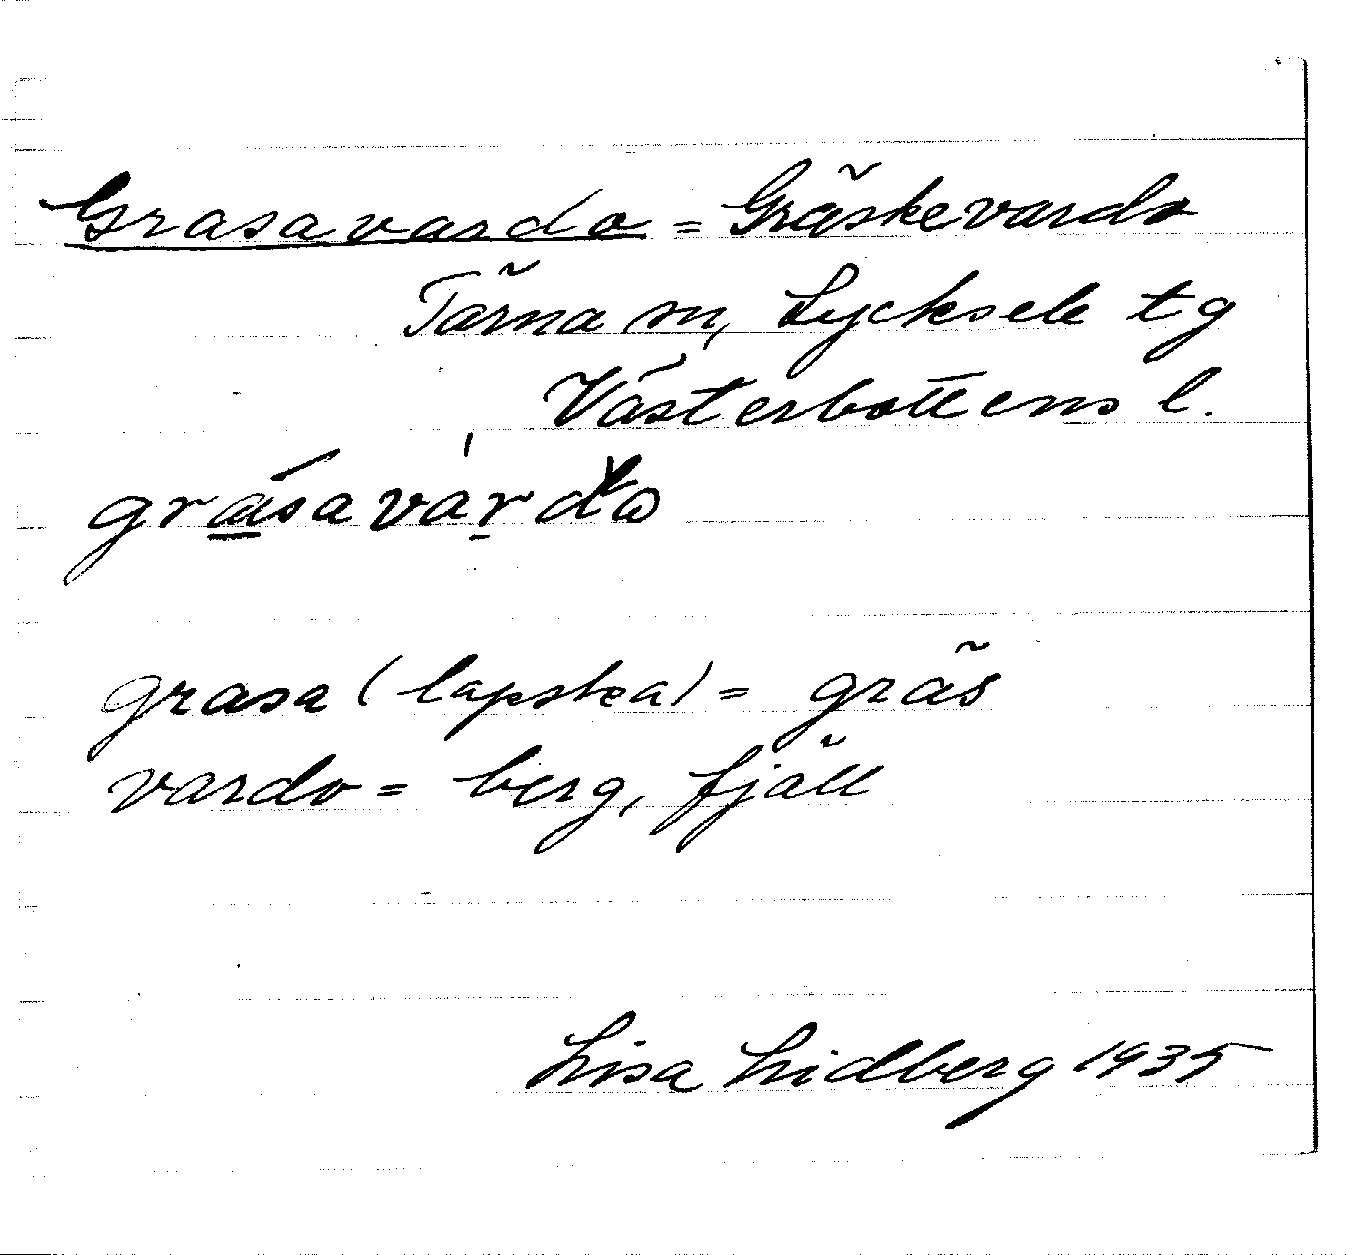 Grasavardo = Gräskevardo
Tärna sn, Lycksele tg
Västerbottens l.
grasavardo
grasa (lapska) = gräs
vardo = berg, fjäll
Lisa Lidberg 1935